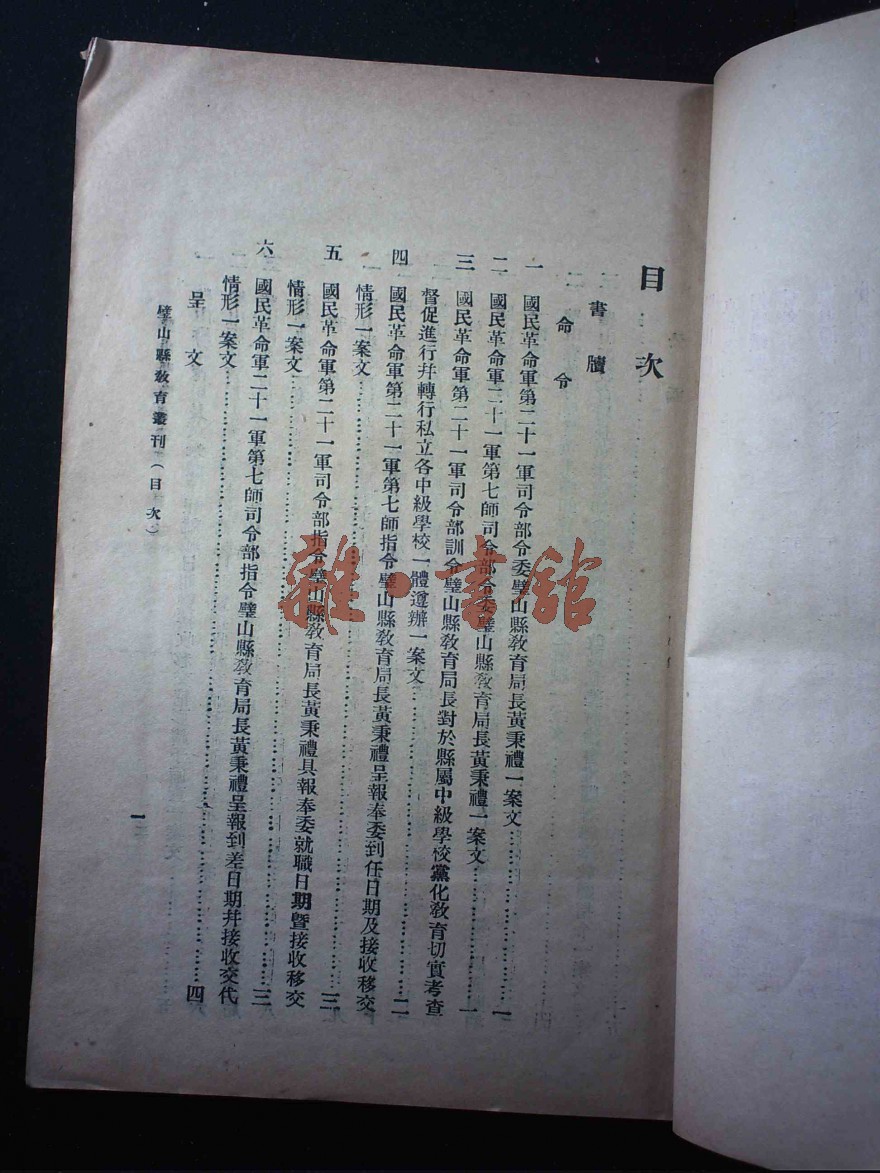 目次
書牘
命令
一 國民革命軍第二十一軍司令部令委璧山縣教育局長黃秉禮一案文……一
二 國民革命軍二十一軍第七師司令部令委璧山縣教育局長黃秉禮一案文……一
三 國民革命軍第二十一軍司令部訓令璧山縣教育局長對於縣屬中級學校黨化教育切實考查
督促進行幷轉行私立各中級學校一體遵辦一案文……二
四 國民革命軍第二十一軍第七師指令璧山縣教育局長黃秉禮呈報奉委到任日期及接收移交
情形一案文……三
五 國民革命軍第二十一軍司令部指令璧山縣教育局長黃秉禮具報奉委就職日期暨接收移交
情形一案文……三
六 國民革命軍二十一軍第七師司令部指令璧山縣教育局長黃秉禮呈報到差日期幷接收交代
情形一案文……四
呈文
璧山縣教育叢刊（目次）
一
雜·書館